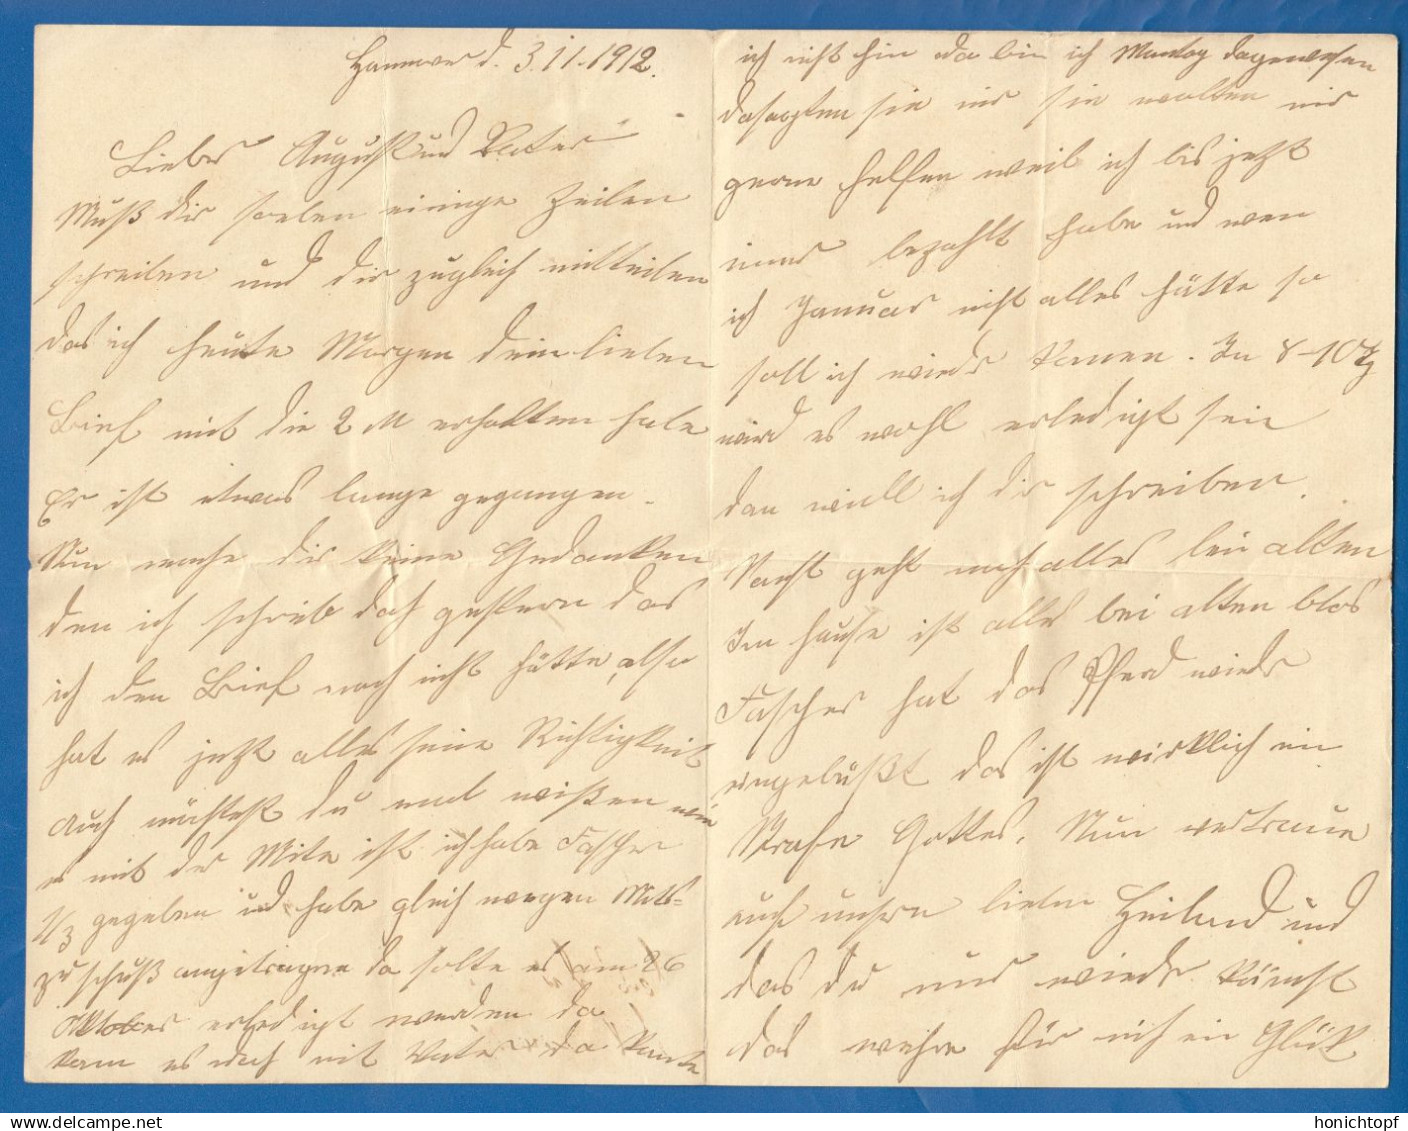 Hannover d. 3.11.1912.
Lieber August und Vater
Muß dir soeben einige Zeilen
schreiben und dir zugleich mitteilen
das ich heute Morgen dein lieben
Brief mit die 2 M erhalten habe
Er ist etwas lange gegangen.
Nun mache dir keine Gedanken
den ich schrieb doch gestern das
ich den Brief noch nicht hätte, also
hat es jetzt alles seine Richtigkeit
Auch möchtest du mal wißen wie
es mit der Mite ist ich habe Fascher
1/3 gegeben und habe gleich wegen Mits-
zuschuß angetragen da solte es am 26
Oktober erledigt werden da
kam es doch mit Vater da konte
ich nicht hin da bin ich Montag dagewesen
da sagten sie mir sie wollten mir
gerne helfen weil ich bis jetzt
immer bezahlt habe und wen
ich Januar nicht alles hätte so
soll ich wieder komen. In 8-10 Tg
wird es wohl erledigt sein
dan will ich dir schreiben.
Sonst geht noch alles bein alten
Im Hause ist alles bei alten blos
Fascher hat das Pferd wieder
eingebüßt das ist wirklich ein
Strafe Gottes. Nun vertraue
auch unsern lieben Heiland und
das du uns wieder kömst
das wehre für mich ein Glück
honichtopf